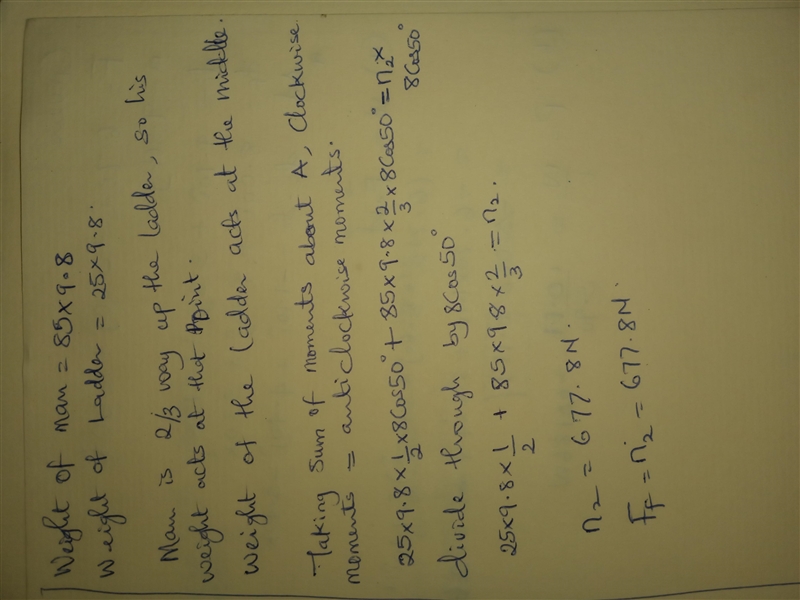 Weight of man = 85×9.8
Weight of Ladder = 25×9.8.
Man is 2/3 way up the ladder, so his
weight acts at that point.
Weight of the ladder acts at the middle.
Taking sum of moments about A, Clockwise
moments = anticlockwise moments.
25×9.8×1/2×8Cos50° + 85×9.8×2/3×8Cos50° = n₂×
8Cos50°
divide through by 8Cos50°
25×9.8×1/2 + 85×9.8×2/3 = n₂.
n₂ = 677.8N.
F_f = n₂ = 677.8N.